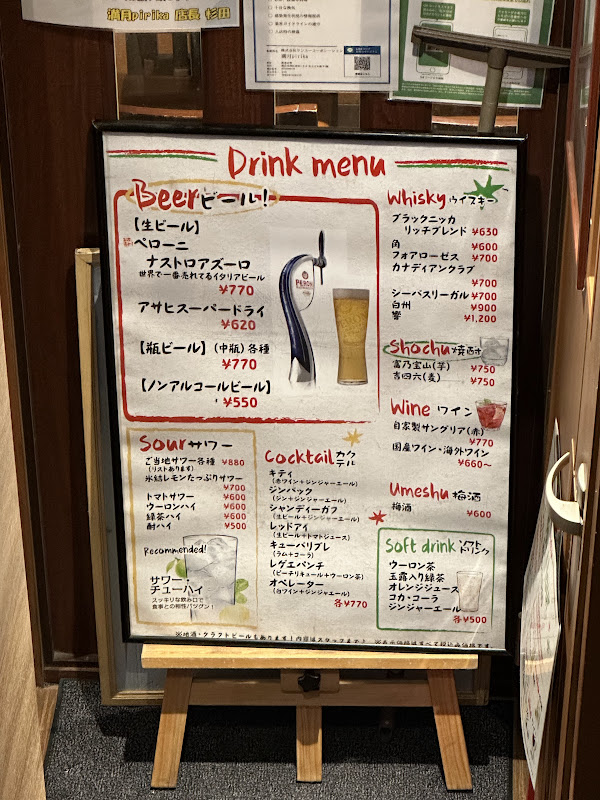 満月pirika 店長 杉田
満月pirika
Drink menu
Beerビール!
【生ビール】
ペローニ
ナストロアズーロ
世界で一番売れてるイタリアビール
¥770
アサヒスーパードライ
¥620
【瓶ビール】(中瓶)各種
¥770
【ノンアルコールビール】
¥550
PERONI
Whisky ウイスキー
ブラックニッカ
リッチブレンド ¥630
角 ¥600
フォアローゼス ¥700
カナディアンクラブ
¥700
シーバスリーガル ¥700
白州 ¥900
響 ¥1,200
Shochu 焼酎
富乃宝山(芋) ¥750
吉四六(麦) ¥750
Wine ワイン
自家製サングリア(赤)
¥770
国産ワイン・海外ワイン
¥660〜
Umeshu 梅酒
梅酒 ¥600
Sour サワー
ご当地サワー各種 ¥880
(リストあります)
氷結レモンたっぷりサワー
¥700
トマトサワー ¥600
ウーロンハイ ¥600
緑茶ハイ ¥600
酎ハイ ¥500
Recommended!
サワー・
チューハイ
スッキリな飲み口で
食事との相性バツグン!
Cocktail カクテル
キティ
(赤ワイン+ジンジャエール)
ジンバック
(ジン+ジンジャーエール)
シャンディーガフ
(生ビール+ジンジャーエール)
レッドアイ
(生ビール+トマトジュース)
キューバリブレ
(ラム+コーラ)
レゲエパンチ
(ピーチリキュール+ウーロン茶)
オペレーター
(白ワイン+ジンジャエール)
各¥770
Soft drink ソフトドリンク
ウーロン茶
玉露入り緑茶
オレンジジュース
コカ・コーラ
ジンジャーエール
各¥500
※地酒・クラフトビールもあります!内容はスタッフまで♪ ※表示価格はすべて税込み価格です。